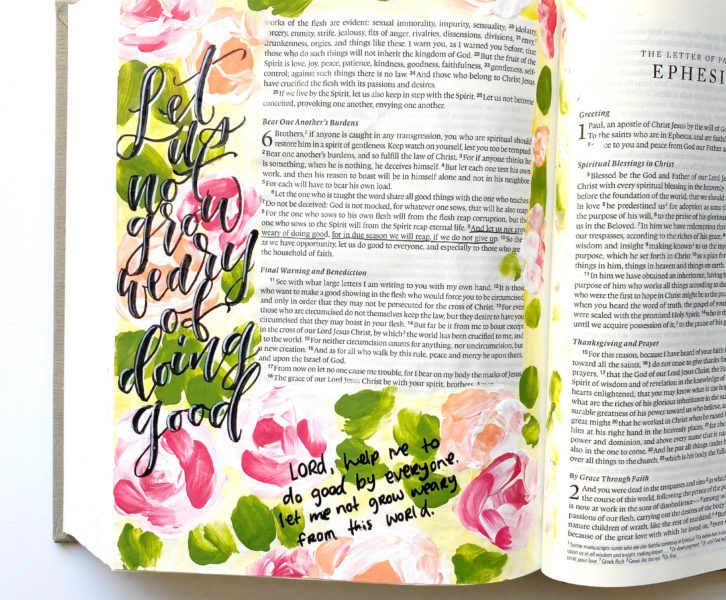 Let
us
not
grow
weary
of
doing
good
works of the flesh are evident: sexual immorality, impurity, sensuality, 20 idolatry,
sorcery, enmity, strife, jealousy, fits of anger, rivalries, dissensions, divisions, 21 envy,
drunkenness, orgies, and things like these. I warn you, as I warned you before, that
those who do such things will not inherit the kingdom of God. 22 But the fruit of the
Spirit is love, joy, peace, patience, kindness, goodness, faithfulness, 23 gentleness, self-
control; against such things there is no law. 24 And those who belong to Christ Jesus
have crucified the flesh with its passions and desires.
25 If we live by the Spirit, let us also keep in step with the Spirit. 26 Let us not become
conceited, provoking one another, envying one another.
Bear One Another's Burdens
6 Brothers, if anyone is caught in any transgression, you who are spiritual should
restore him in a spirit of gentleness. Keep watch on yourself, lest you too be tempted.
2 Bear one another's burdens, and so fulfill the law of Christ. 3 For if anyone thinks he
is something, when he is nothing, he deceives himself. 4 But let each one test his own
work, and then his reason to boast will be in himself alone and not in his neighbor.
5 For each will have to bear his own load.
6 Let the one who is taught the word share all good things with the one who teaches.
7 Do not be deceived: God is not mocked, for whatever one sows, that will he also reap.
8 For the one who sows to his own flesh will from the flesh reap corruption, but the
one who sows to the Spirit will from the Spirit reap eternal life. 9 And let us not grow
weary of doing good, for in due season we will reap, if we do not give up. 10 So then,
as we have opportunity, let us do good to everyone, and especially to those who are
the household of faith.
Final Warning and Benediction
11 See with what large letters I am writing to you with my own hand. 12 It is those
who want to make a good showing in the flesh who would force you to be circumcised,
and only in order that they may not be persecuted for the cross of Christ. 13 For even
those who are circumcised do not themselves keep the law, but they desire to have you
circumcised that they may boast in your flesh. 14 But far be it from me to boast except
in the cross of our Lord Jesus Christ, by which the world has been crucified to me, and
to the world. 15 For neither circumcision counts for anything, nor uncircumcision, but
a new creation. 16 And as for all who walk by this rule, peace and mercy be upon them,
and upon the Israel of God.
17 From now on let no one cause me trouble, for I bear on my body the marks of Jesus.
18 The grace of our Lord Jesus Christ be with your spirit, brothers. Amen.
LORD, help me to
do good by everyone.
let me not grow weary
from this world.
THE LETTER OF PA
EPHESI
Greeting
1 Paul, an apostle of Christ Jesus by the will of God
To the saints who are in Ephesus, and are faithful
to you and peace from God our Father
Spiritual Blessings in Christ
3 Blessed be the God and Father of our Lord Je
Christ with every spiritual blessing in the heavenly
before the foundation of the world, that we should
In love 5 he predestined us for adoption as sons
the purpose of his will, 6 to the praise of his glorious
us in the Beloved. 7 In him we have redemption through
our trespasses, according to the riches of his grace, 8
wisdom and insight 9 making known to us the
purpose, which he set forth in Christ 10 as a plan for
things in him, things in heaven and things on earth.
11 In him we have obtained an inheritance, having
purpose of him who works all things according to the
who were the first to hope in Christ might be to the praise
when you heard the word of truth, the gospel of your
were sealed with the promised Holy Spirit, 14 who is the
until we acquire possession of it, to the praise of his
Thanksgiving and Prayer
15 For this reason, because I have heard of your faith
toward all the saints, 16 I do not cease to give thanks for
prayers, 17 that the God of our Lord Jesus Christ, the Fa
Spirit of wisdom and of revelation in the knowledge of
hearts enlightened, that you may know what is the hope
what are the riches of his glorious inheritance in the saints
surable greatness of his power toward us who believe,
great might 20 that he worked in Christ when he raised
him at his right hand in the heavenly places, 21 far
power and dominion, and above every name that is na
also in the one to come. 22 And he put all things under
over all things to the church, 23 which is his body, the full
By Grace Through Faith
2 And you were dead in the trespasses and sins 2 in which
the course of this world, following the prince of the po
is now at work in the sons of disobedience—3 among
passions of our flesh, carrying out the desires of the body
nature children of wrath, like the rest of mankind. 4 But
because of the great love with which he loved us, 5 even